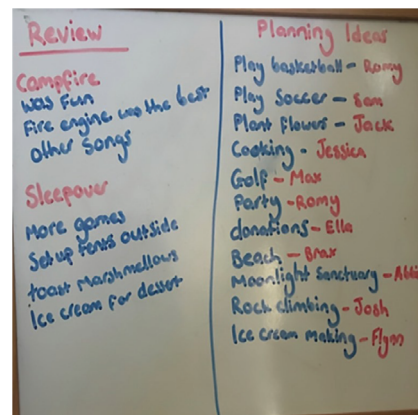 Review
Campfire
was Fun
Fire engine was the best
other Songs
Sleepover
More games
Set up tents outside
toast Marshmallows
Ice cream for dessert
Planning Ideas
Play basketball - Romy
Play Soccer - Sam
Plant flowers - Jack
Cooking - Jessica
Golf - Max
Party - Romy
donations - Ella
Beach - Brax
Moonlight Sanctuary -
Rock climbing - Josh
Ice cream making - Flynn